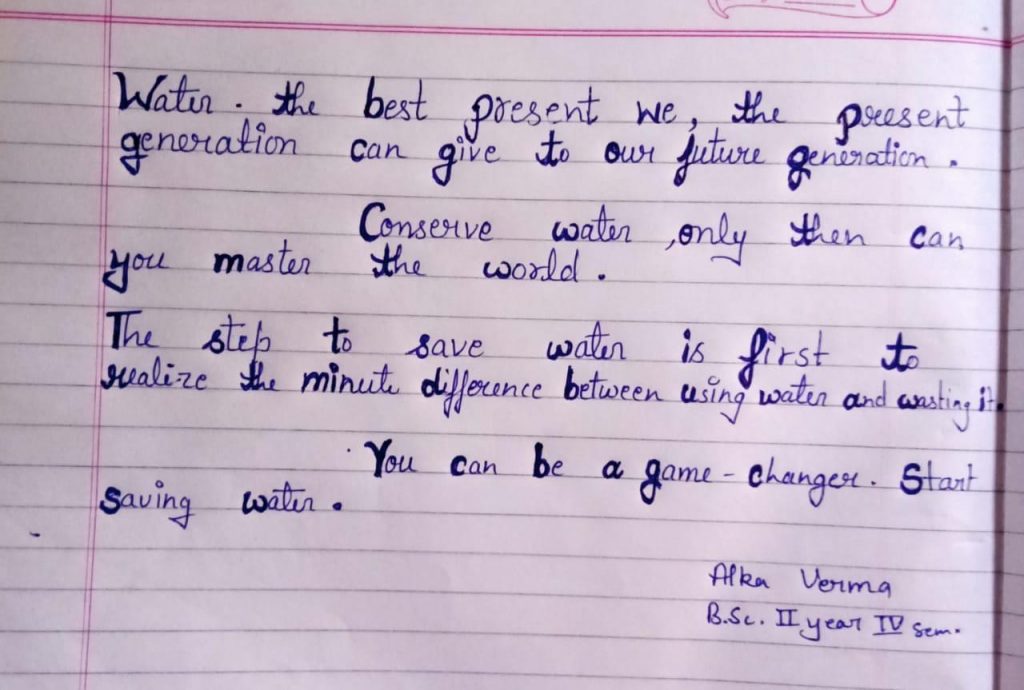 Water. the best present we, the present
generation can give to our future generation.
Conserve water, only then can
you master the world.
The step to save water is first to
realize the minute difference between using water and wasting it.
You can be a game-changer. Start
saving water.
Alka Verma
B.Sc. II year IV sem.